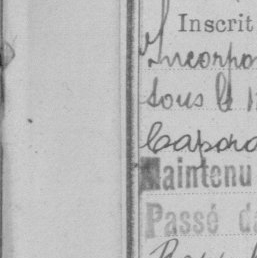 Inscrit
Incorpo
sous le 
Capora
Maintenu
Passé da